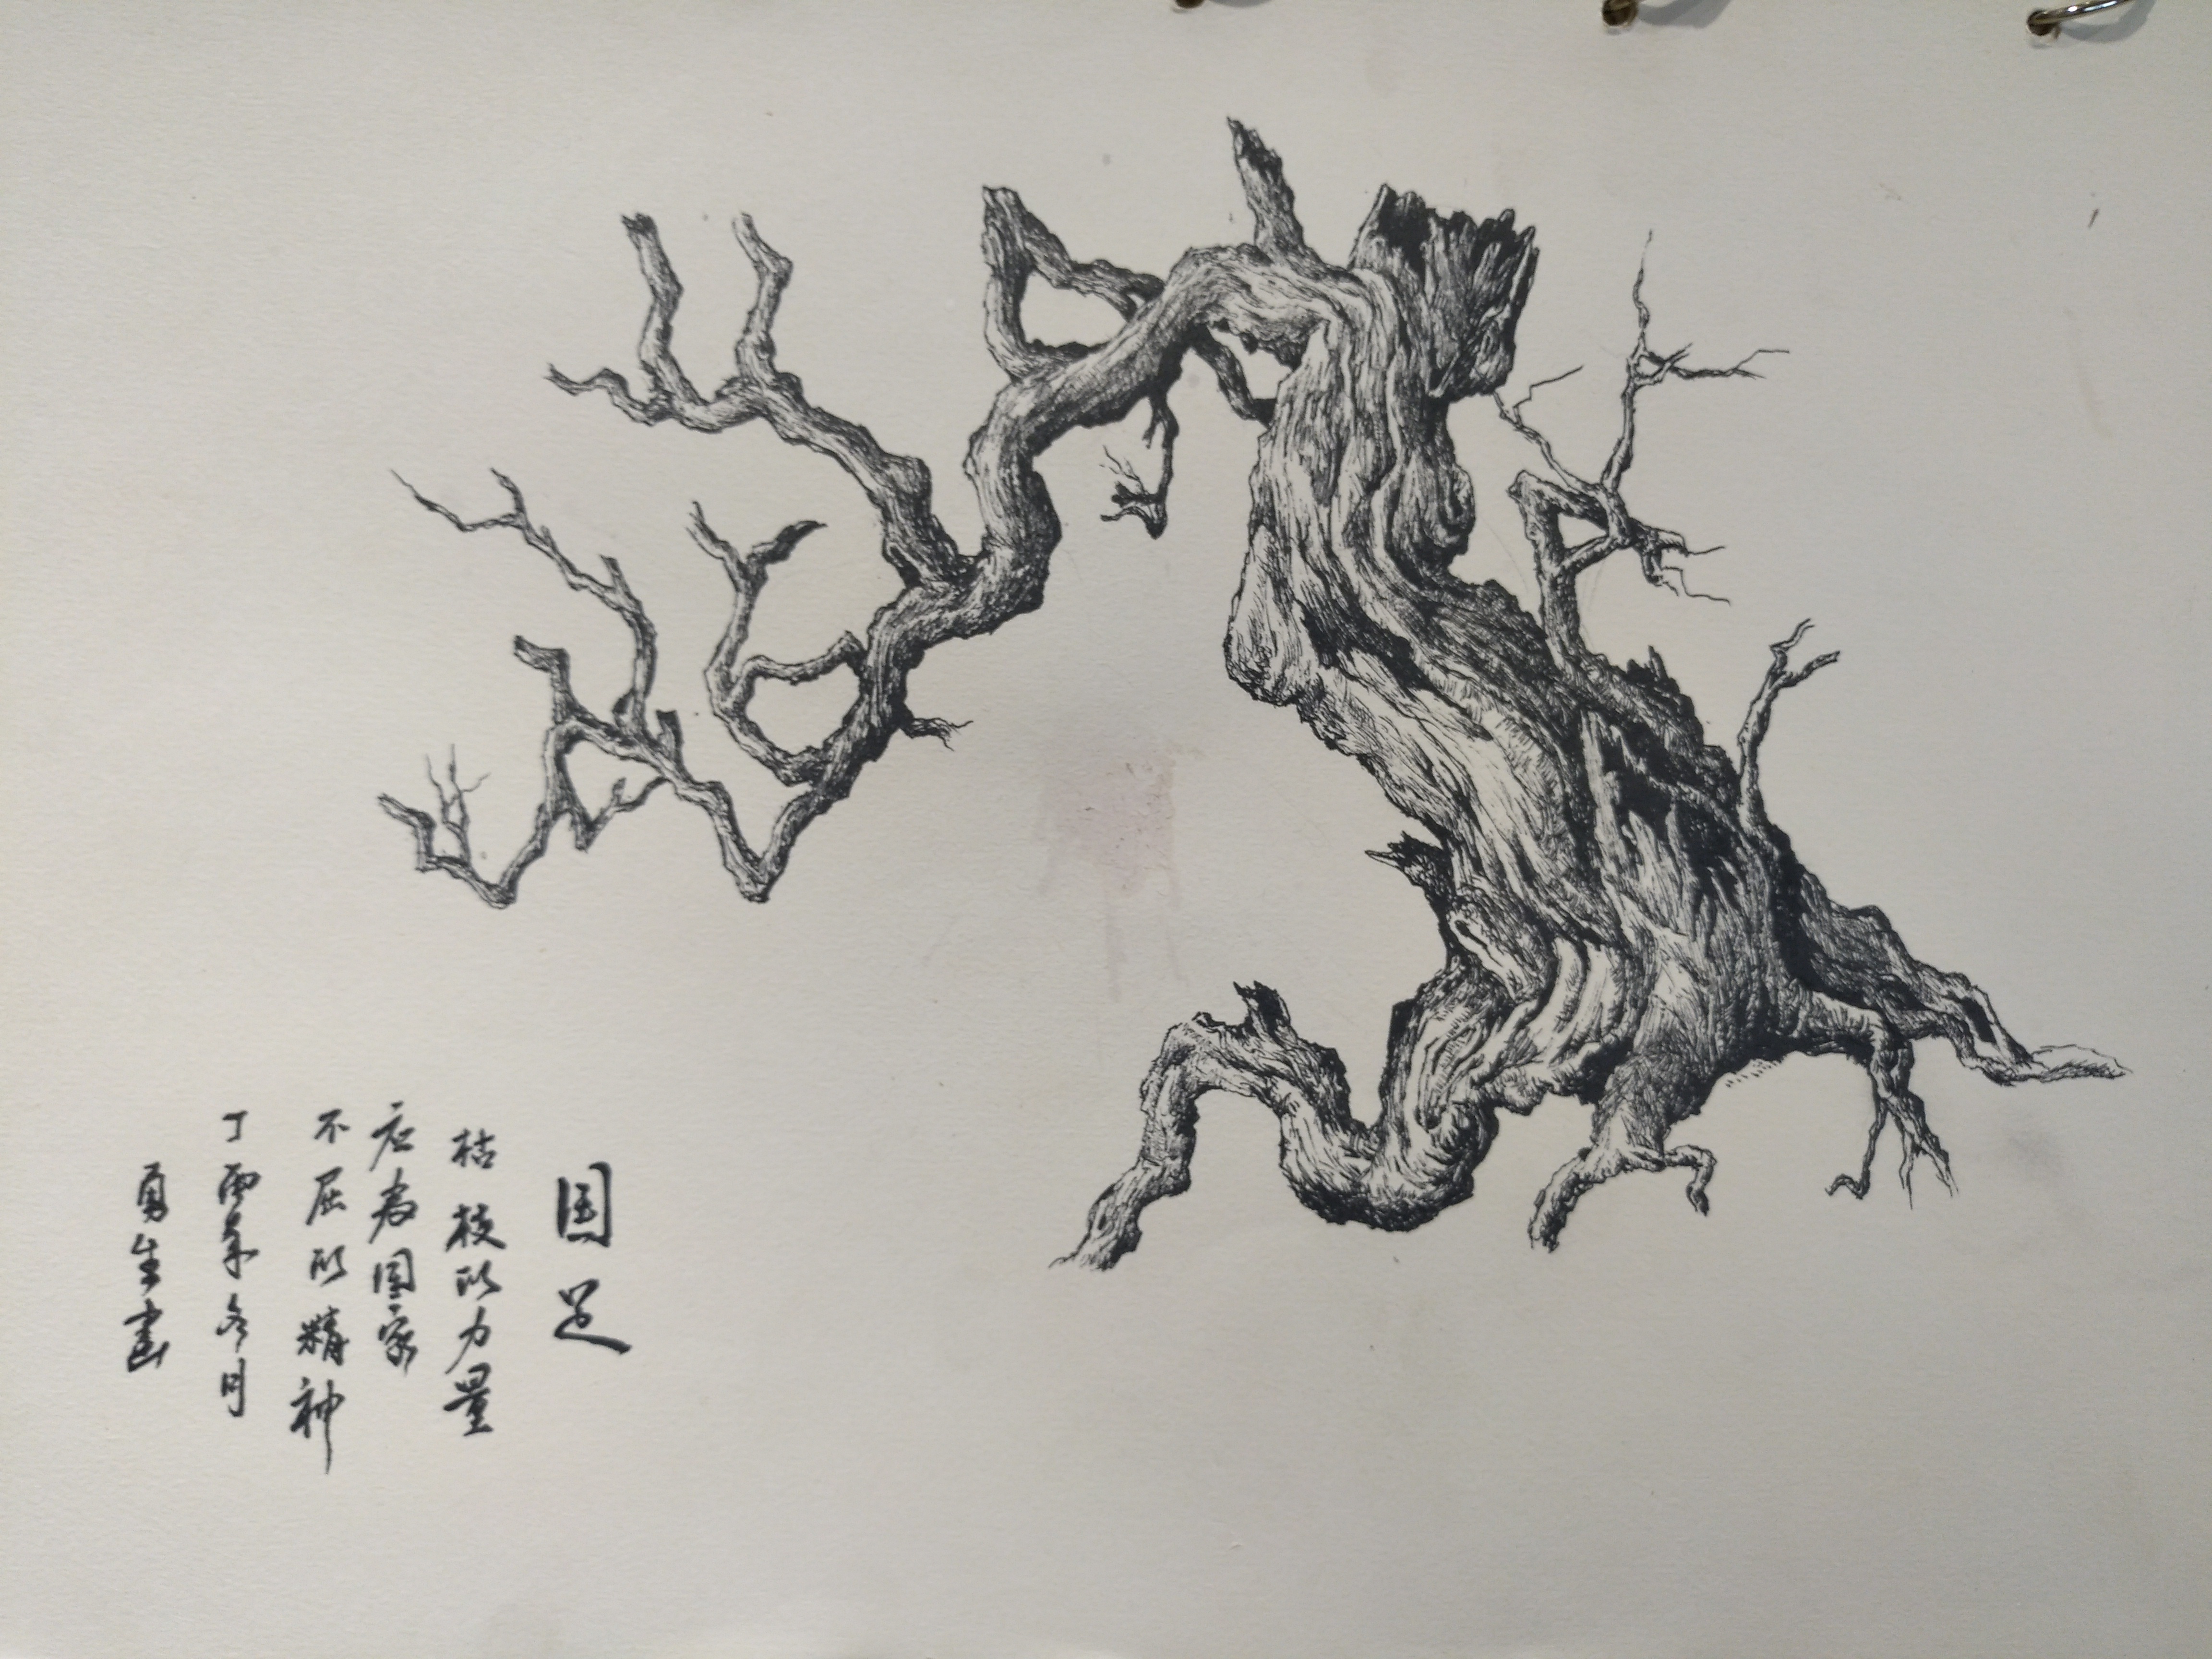 国足
枯枝的力量
应为国家
不屈的精神
丁酉年冬月
勇生畫